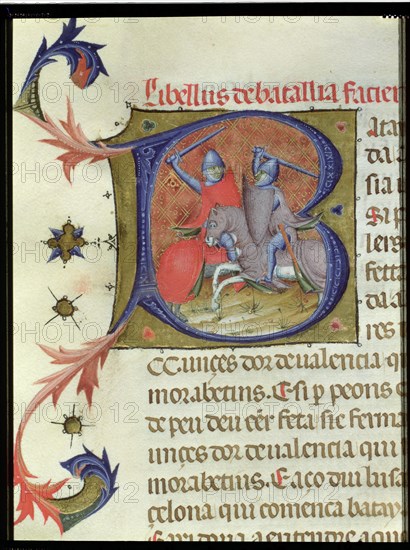 Libellus de batallia facien
B
atan
da
sia
si p
lers
fetta
da a
res i
CC. unces dor de valencia q
morabetins. E si p peons e
de peu deu eer feta sie ferma
unces dor de valencia qui
morabetins. E aço diu lusa
celona qui comença batay
a entendre a